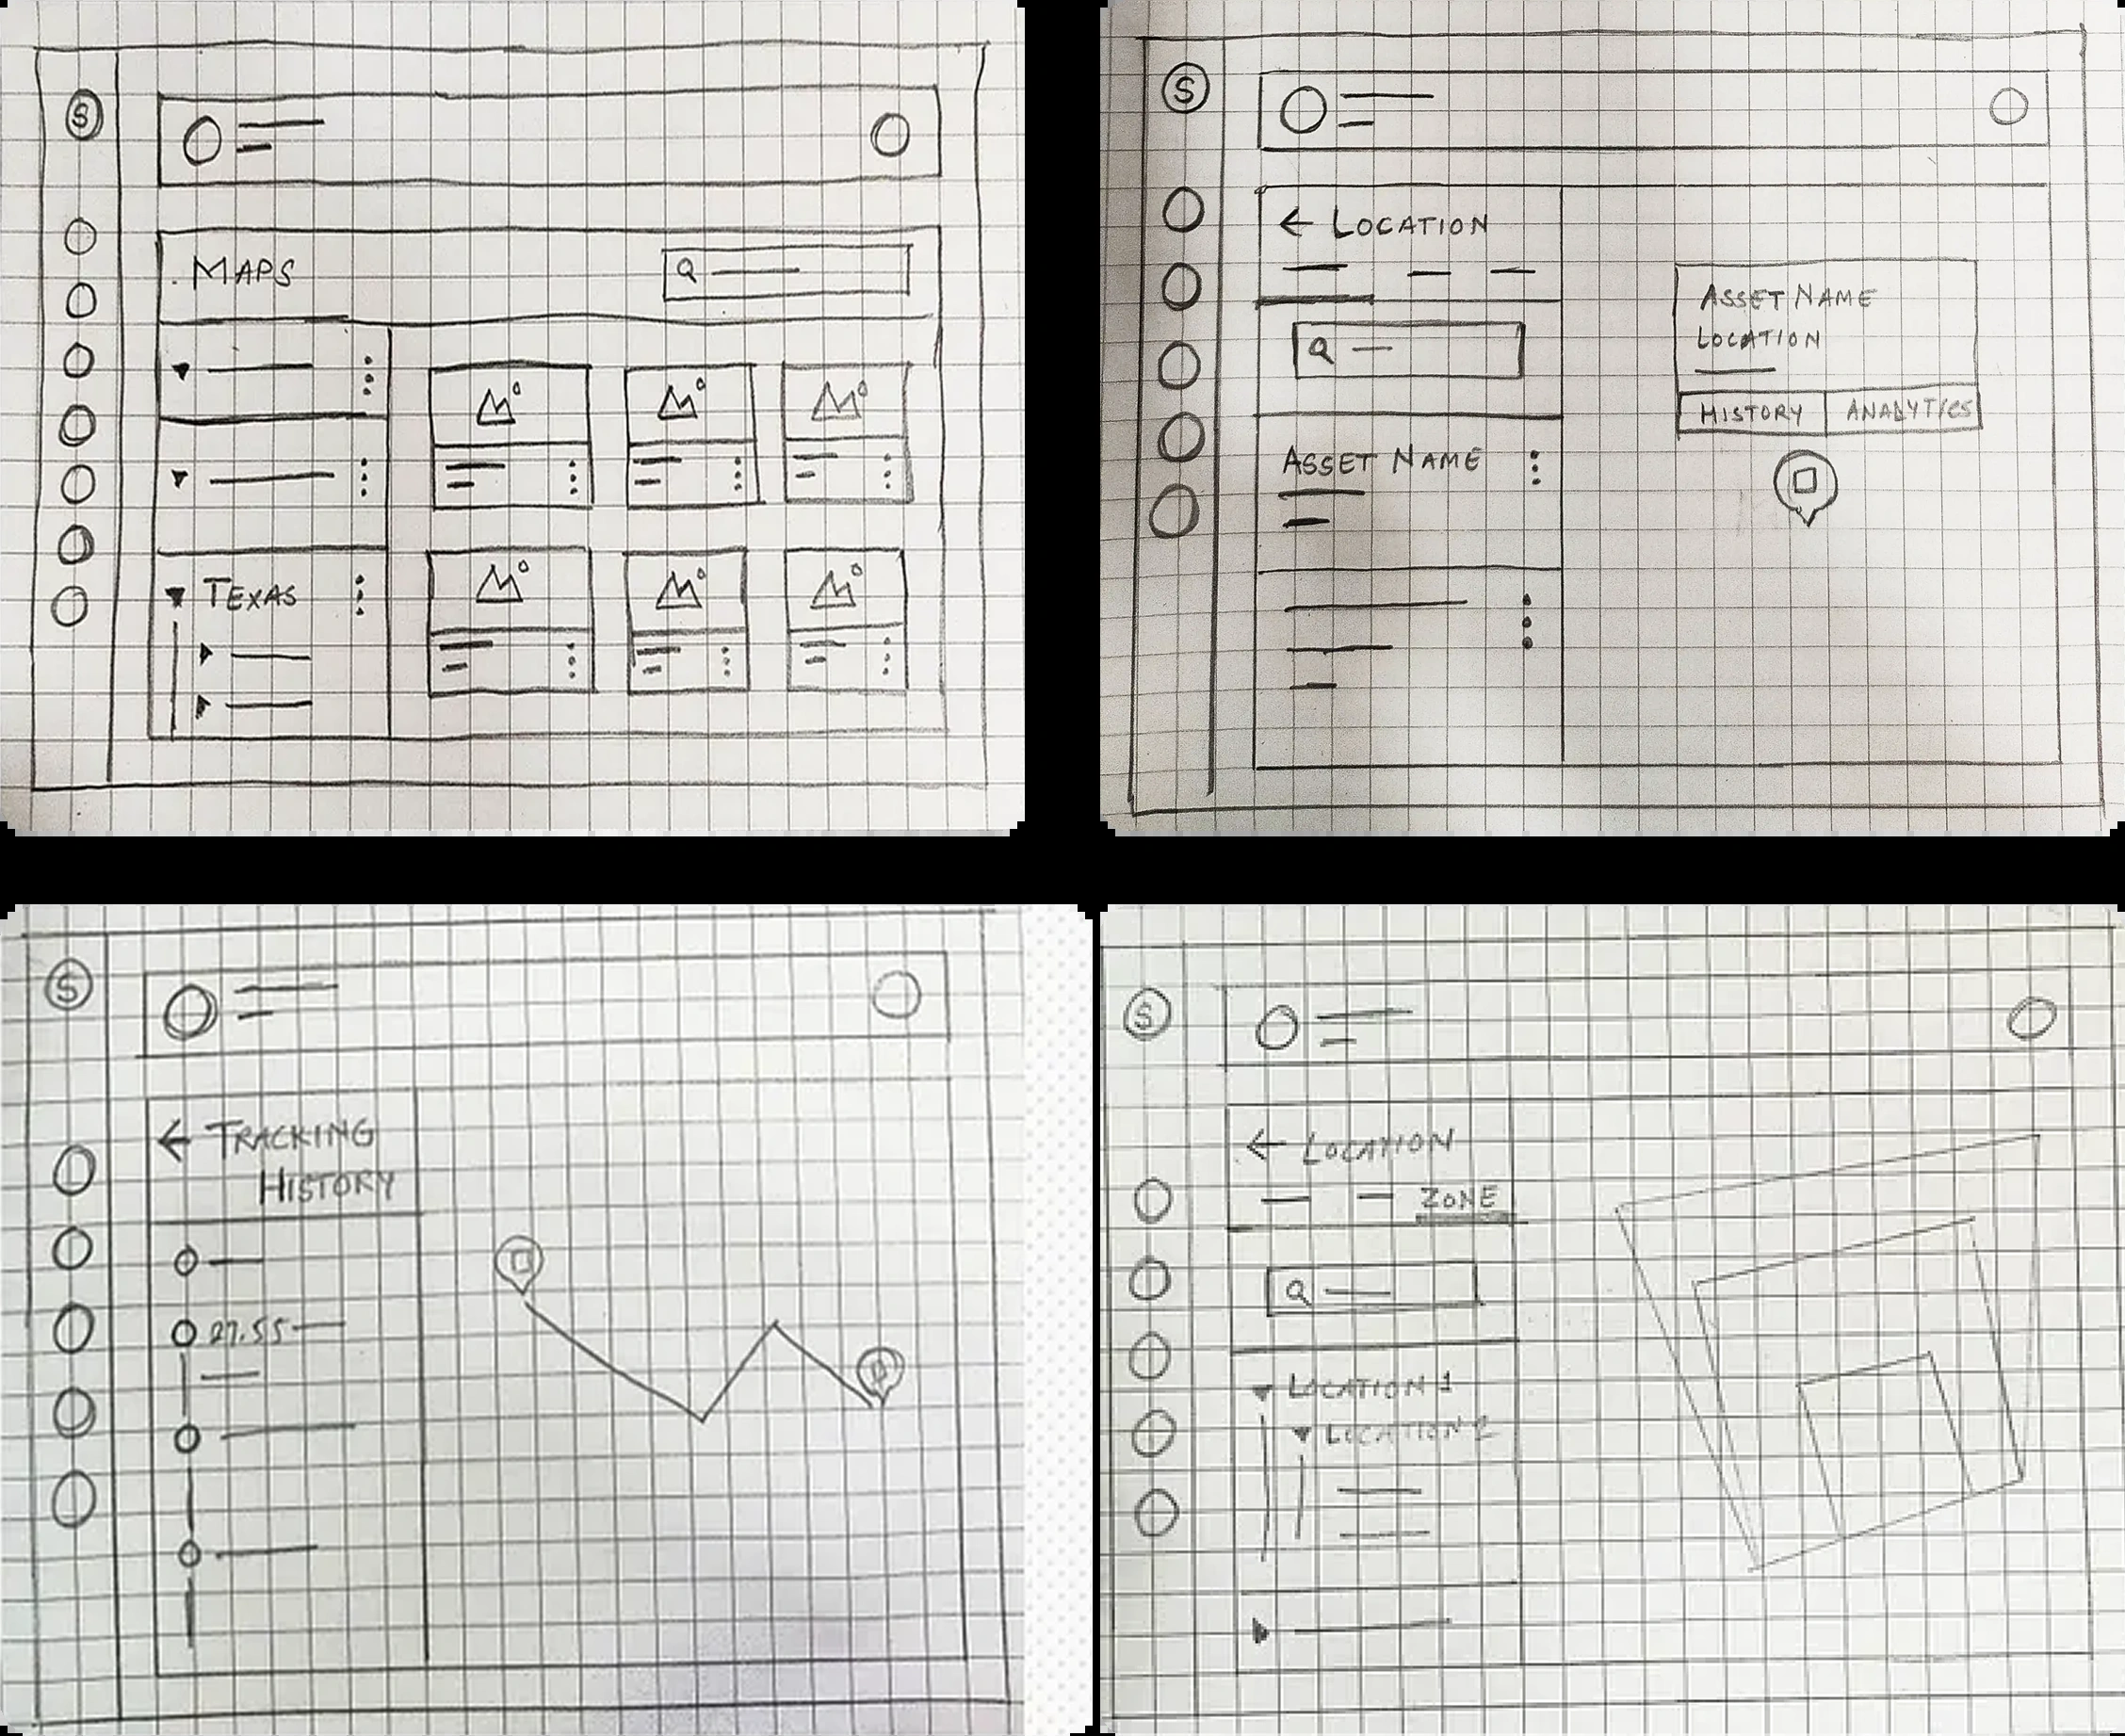 S
MAPS
TEXAS
S
← LOCATION
ASSET NAME
ASSET NAME
LOCATION
HISTORY
ANALYTICS
S
← TRACKING
HISTORY
27.55
S
← LOCATION
ZONE
LOCATION 1
LOCATION 2